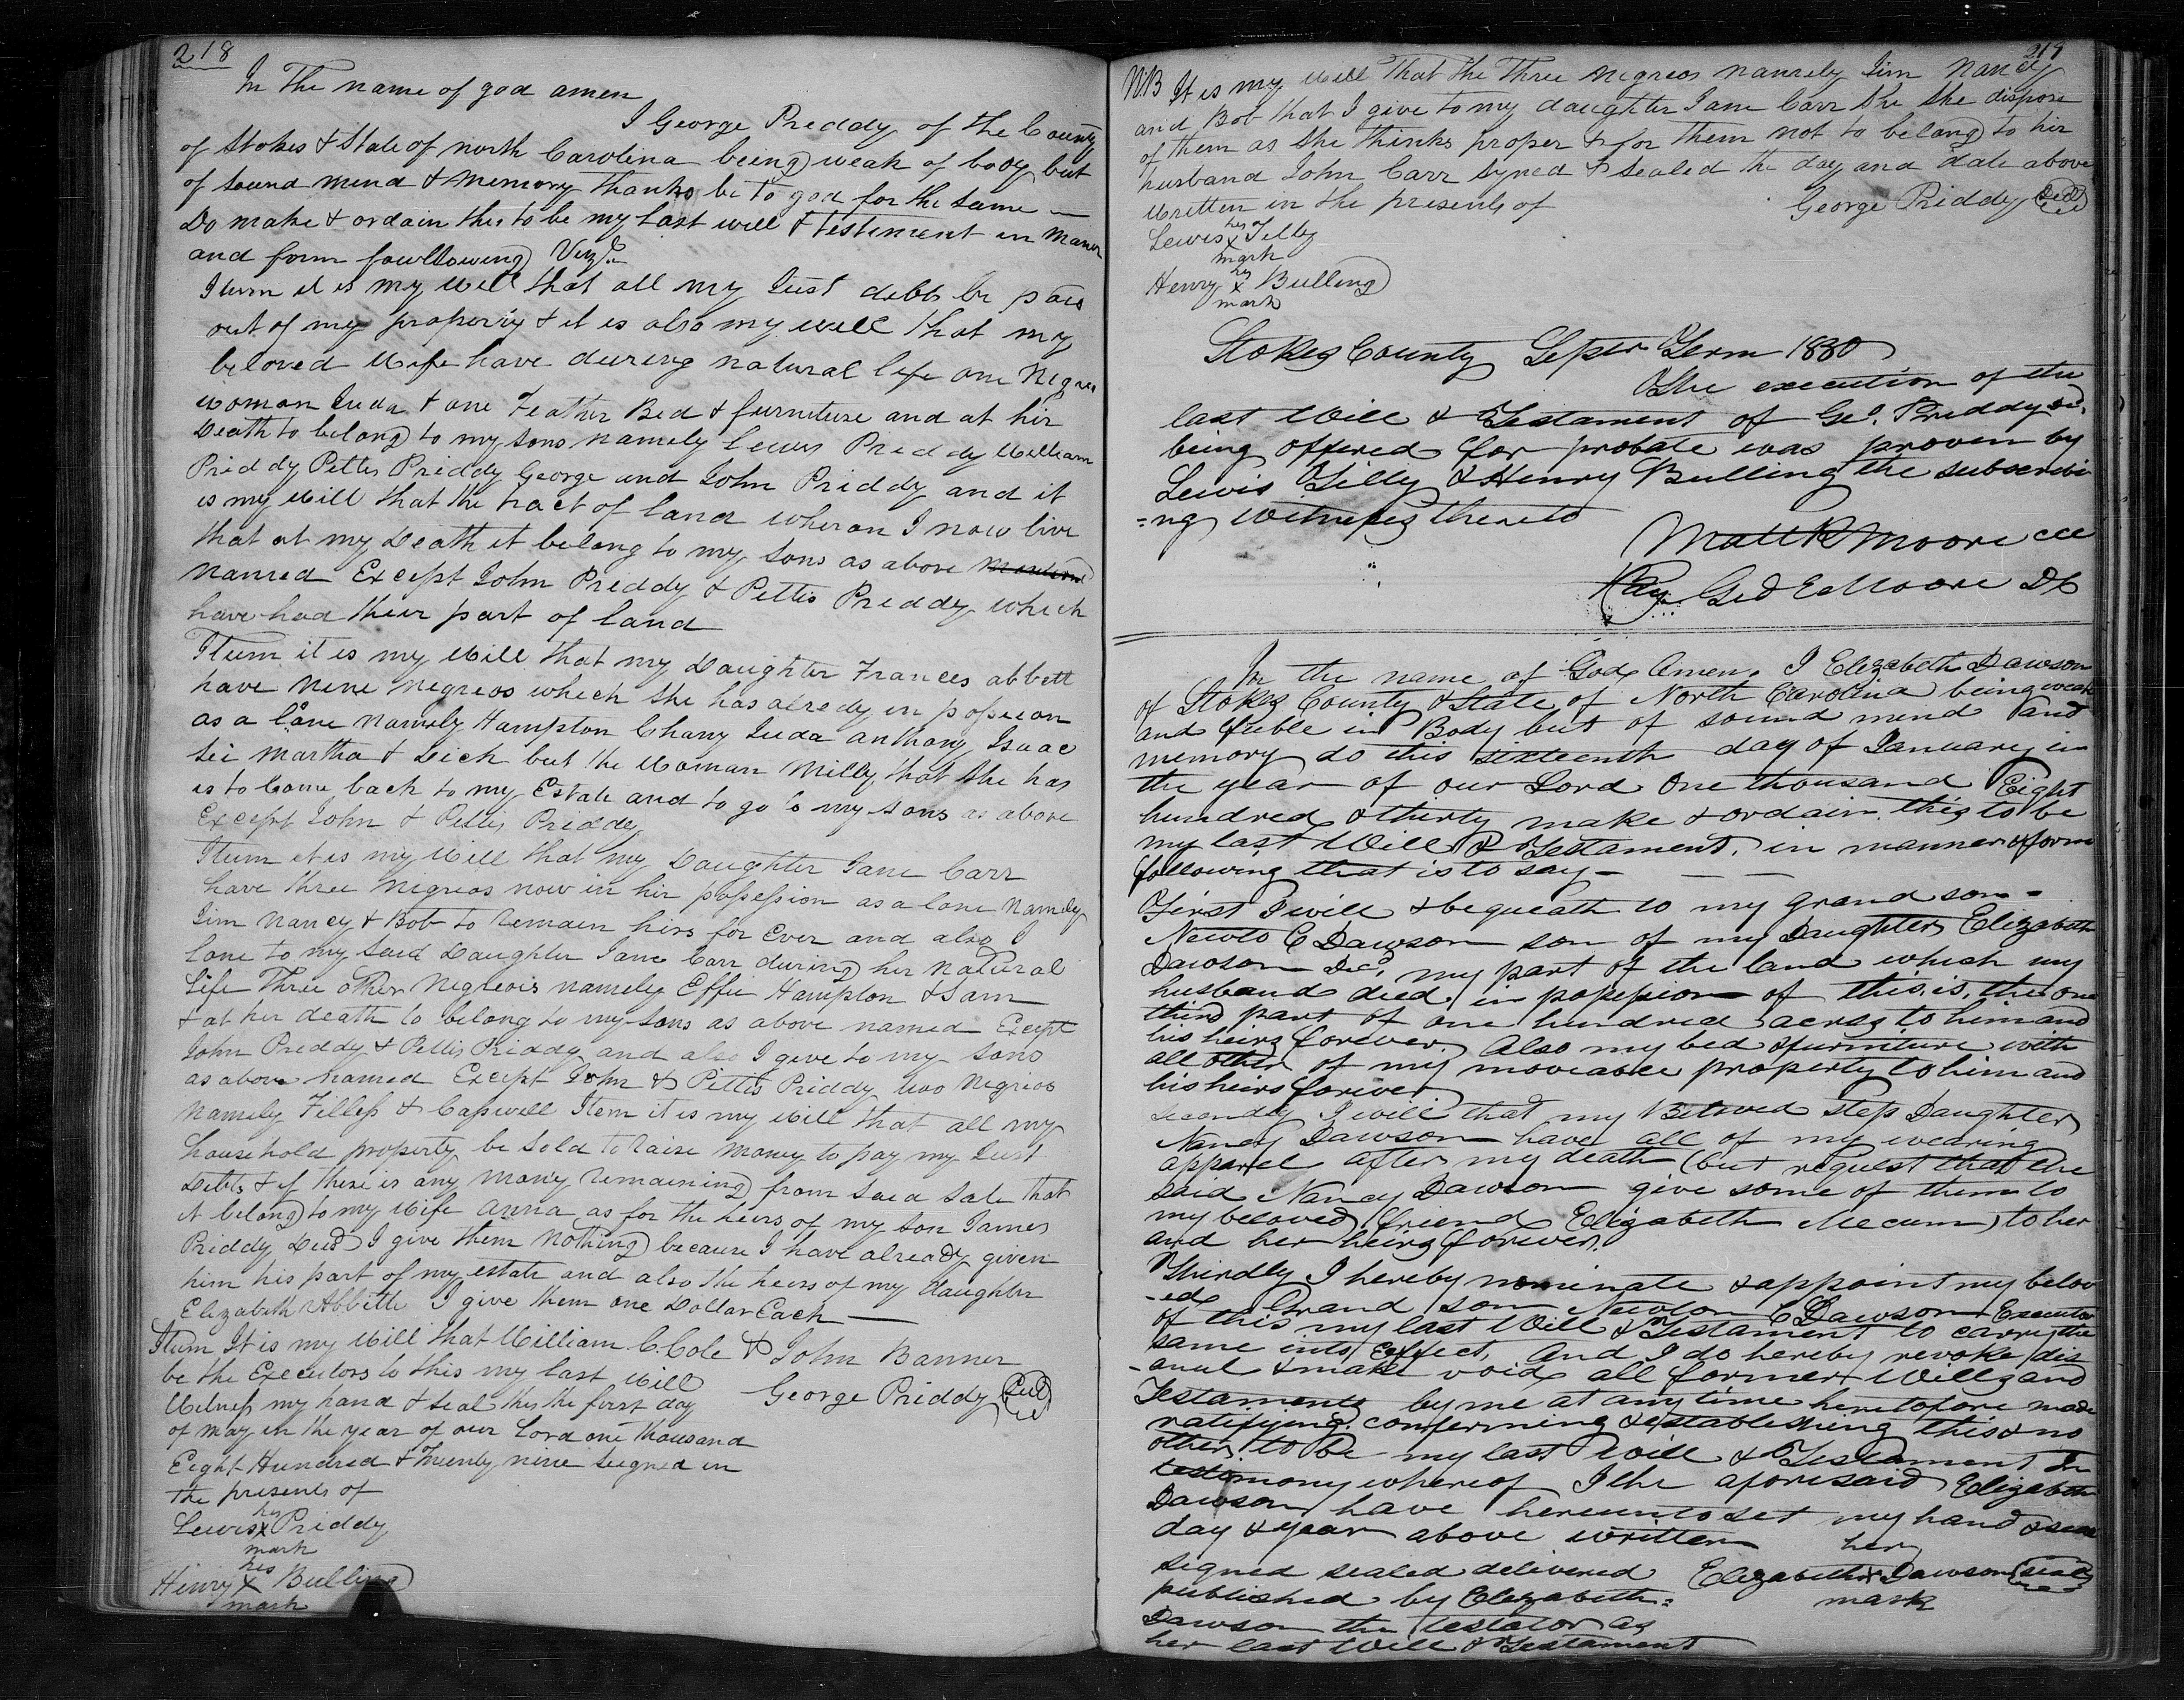 218
In The name of god amen
I George Priddy of the County
of Stokes & State of north Carolina being weak of body but
of sound mind & memory thanks be to god for the same —
Do make & ordain this to be my last will & testiment in maner
and form fowllowing Viz
Itum it is my Will that all my Just debts be paid
out of my property & it is also my will that my
beloved Wife have during natural life one Negro
woman Juda & one Feather Bed & furniture and at hir
Death to belong to my sons namely Lewis Priddy William
Priddy Pettis Priddy George and John Priddy and it
is my Will that the tract of land wheron I now live
that at my Death it belong to my sons as above
named Except John Priddy & Pettis Priddy which
have had their part of land
Itum it is my Will that my Daughter Frances abbett
have nine negroes which she has alredy in possecon
as a lone namely Hampton Chany Juda anthony Isaac
Martha & Dick but the Woman Milly that she has
is to Come back to my Estate and to go to my sons as above
Except John & Pettis Priddy
Itum it is my Will that my Daughter Jane Carr
have three negroes now in hir possession as a lone Namely
Jim Nancy & Bob to remain hirs for Ever and also I
lone to my said Daughter Jane Carr during her natural
Life Three other Negroes namely Effie Hampton & Sam
& at her death to belong to my sons as above named Except
John Priddy & Pettis Priddy and also I give to my sons
as above named Except John & Pettis Priddy two Negroes
Namely Filless & Casswell Item it is my Will that all my
household property be Sold to raise money to pay my Just
Debts & if there is any mony remaining from said Sale that
it belong to my Wife Anna as for the heirs of my son James
Priddy Decd I give them nothing because I have already given
him his part of my estate and also the heirs of my daughter
Elizabeth Abbette I give them one Dollar Each —
Itum It is my Will that William C. Cole & John Banner
be the Executors to this my last Will
Witness my hand & seal this the first day George Priddy Seal
of May in the year of our Lord one thousand
Eight Hundred & Twenty nine Seigned in
the presents of
his
Lewis X Priddy
mark
his
Henry X Bulling
mark
219
NB It is my Will That the Three negroes namely Jim Nancy
and Bob that I give to my daughter Jane Carr she dispose
of them as she thinks proper & for them not to belong to hir
husband John Carr Syned & Sealed the day and date above
Written in the presents of George Priddy Seal
his
Lewis X Tilly
mark
his
Henry X Bulling
mark
Stokes County Septer Term 1830
The execution of the
last Will & Testament of Geo. Priddy
being offered for probate was proven by
Lewis Tilly & Henry Bulling the subscribi
=ng Witnesses thereto
Matt R Moore CCC
Geo E Moore DC
In the name of God Amen. I Elizabeth Dawson
of Stokes County & State of North Carolina being weak
and feeble in Body but of sound mind and
memory do this sixteenth day of January in
the year of our Lord One thousand Eight
hundred & thirty make & ordain this to be
my last Will & Testament. in manner & form
following that is to say — — —
First I will & bequeath to my grand son =
Newto C Dawson son of my Daughter Elizabeth
Dawson Decd. my part of the land which my
husband died in possession of this is, the one
third part of one hundred acres to him and
his heirs forever Also my bed & furniture with
all other of my moveable property to him and
his heirs forever
Secondly I will that my Beloved step Daughter
Nancy Dawson have all of my wearing
apparel after my death (but request that the
said Nancy Dawson give some of them to
my beloved friend Elizabeth Mecum) to her
and her heirs forever.
Thirdly I hereby nominate & appoint my belov
-ed Grand son Newton C Dawson Executor
of this my last Will & Testament to carry the
same into Effect, And I do hereby revoke dis
-anul & make void all former Wills and
Testaments by me at any time heretofore made
ratifying confirming & establishing this & no
other to be my last Will & Testament In
testimony whereof I the aforesaid Elizabeth
Dawson have hereunto set my hand & seal
day & year above written
signed sealed delivered her
published by Elizabeth = Elizabeth X Dawson seal
Dawson the testator as mark
her last Will & Testament